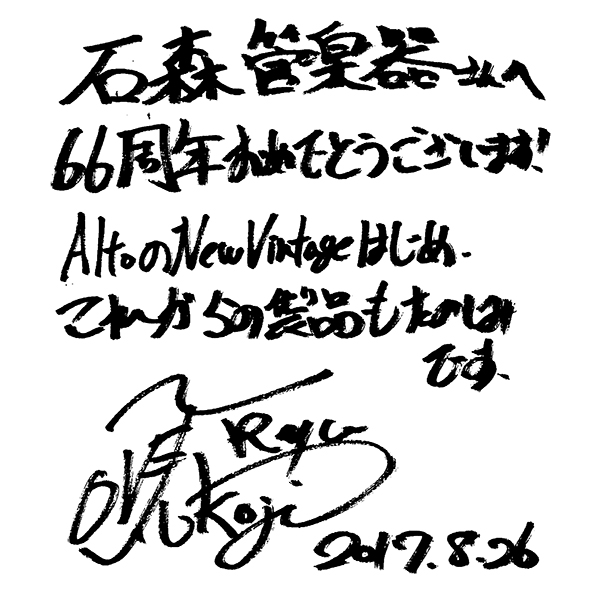 石森管楽器さんへ
66周年おめでとうございます!
AltoのNew Vintageはじめ、
これからの製品もたのしみ
です、
Ryu
Koji
2017.8.26